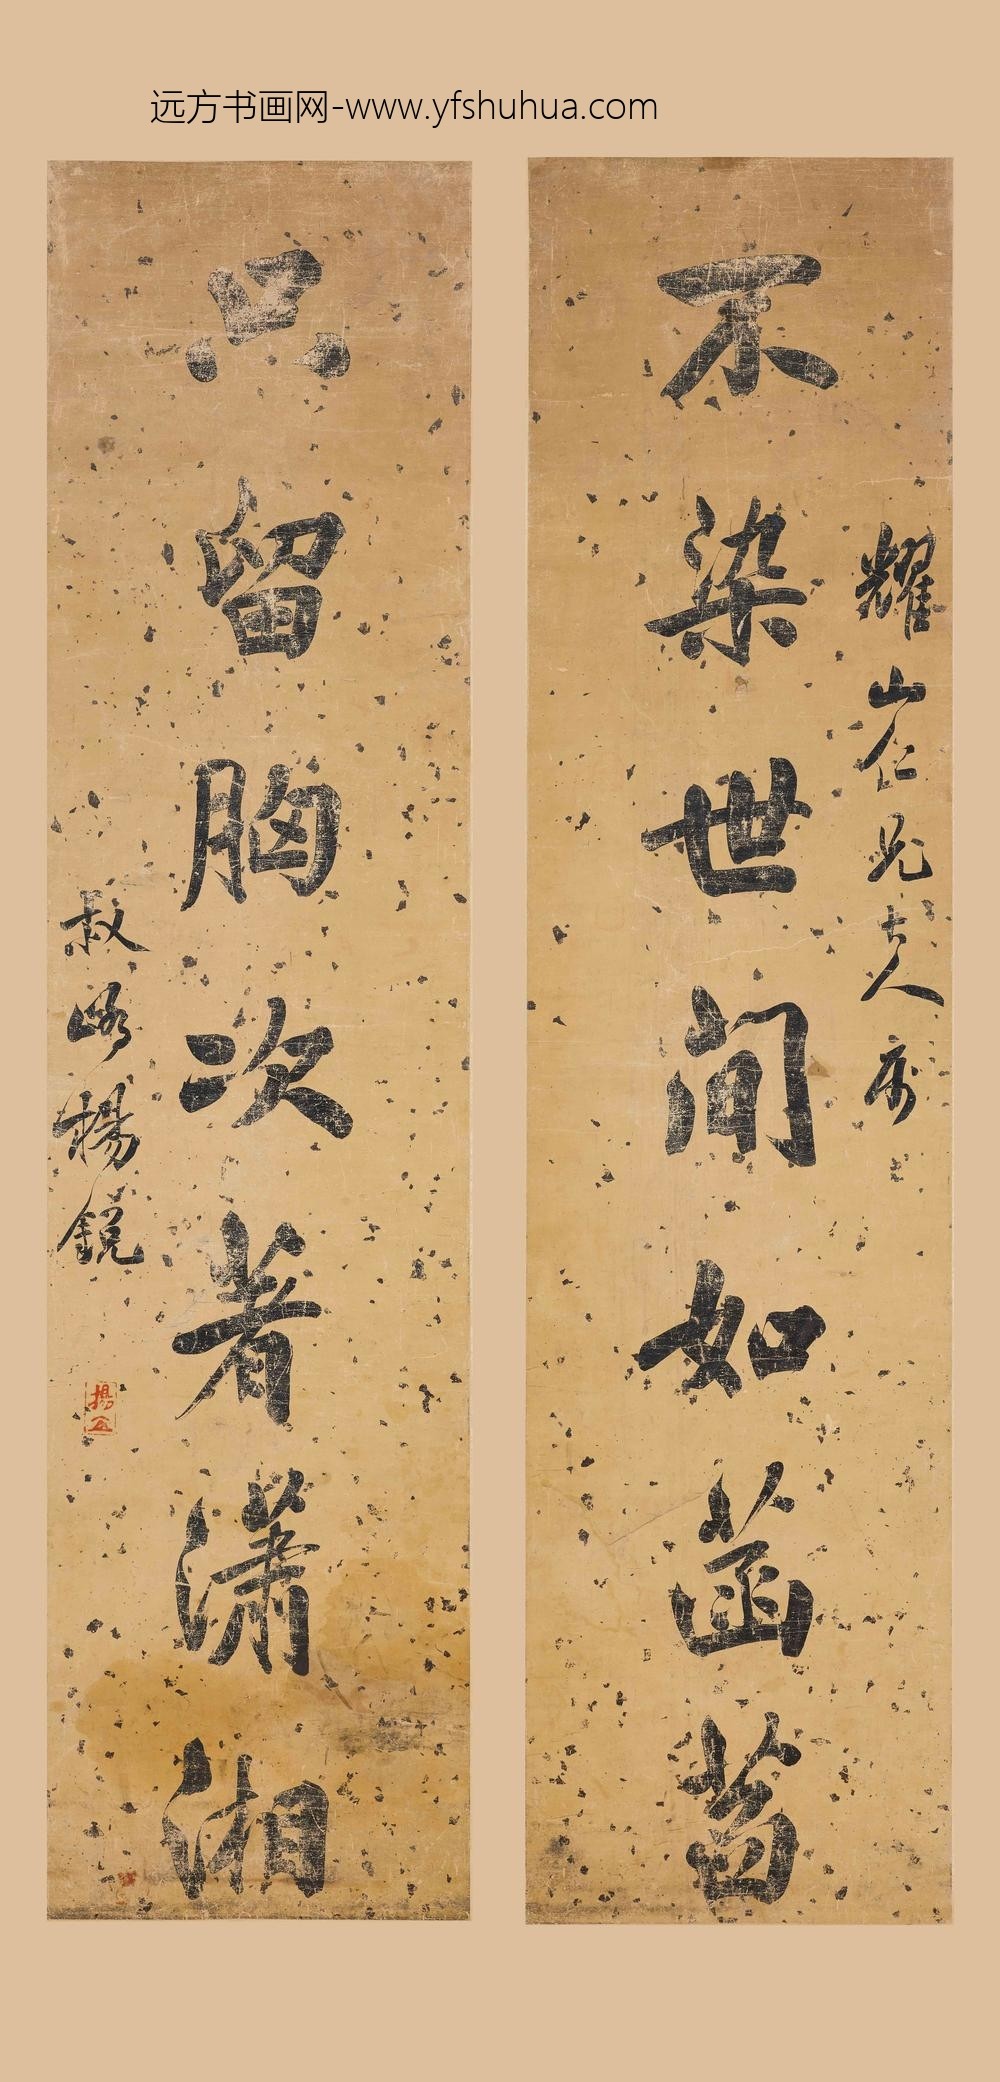 远方书画网-www.yfshuhua.com
耀山仁兄大人属
不染世间如菡萏
只留胸次著潇湘
叔峤杨锐